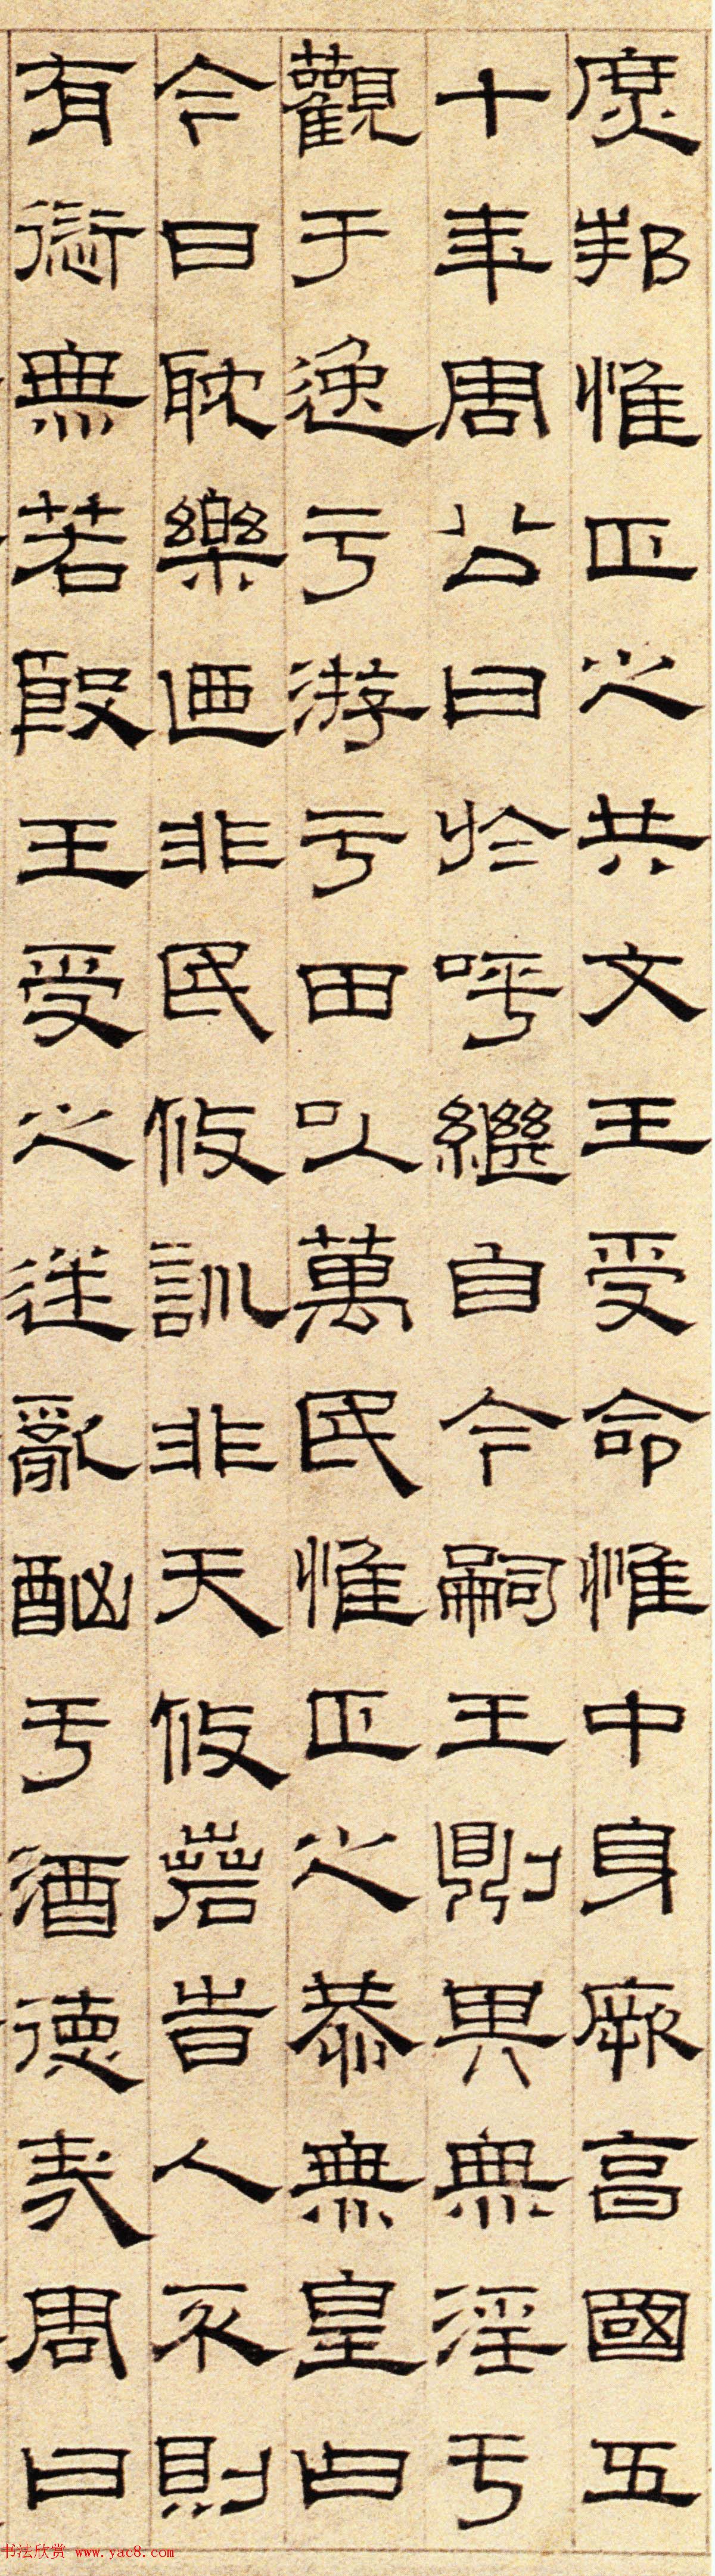 庶邦惟正之共文王受命惟中身厥享國五
十年周公曰於呼繼自今嗣王則其無淫于
觀于逸于游于田以萬民惟正之恭無皇曰
今日耽樂迺非民攸訓非天攸若旹人不則
有愆無若殷王受之迷亂酗于酒德哉周曰
书法欣赏 www.yac8.com